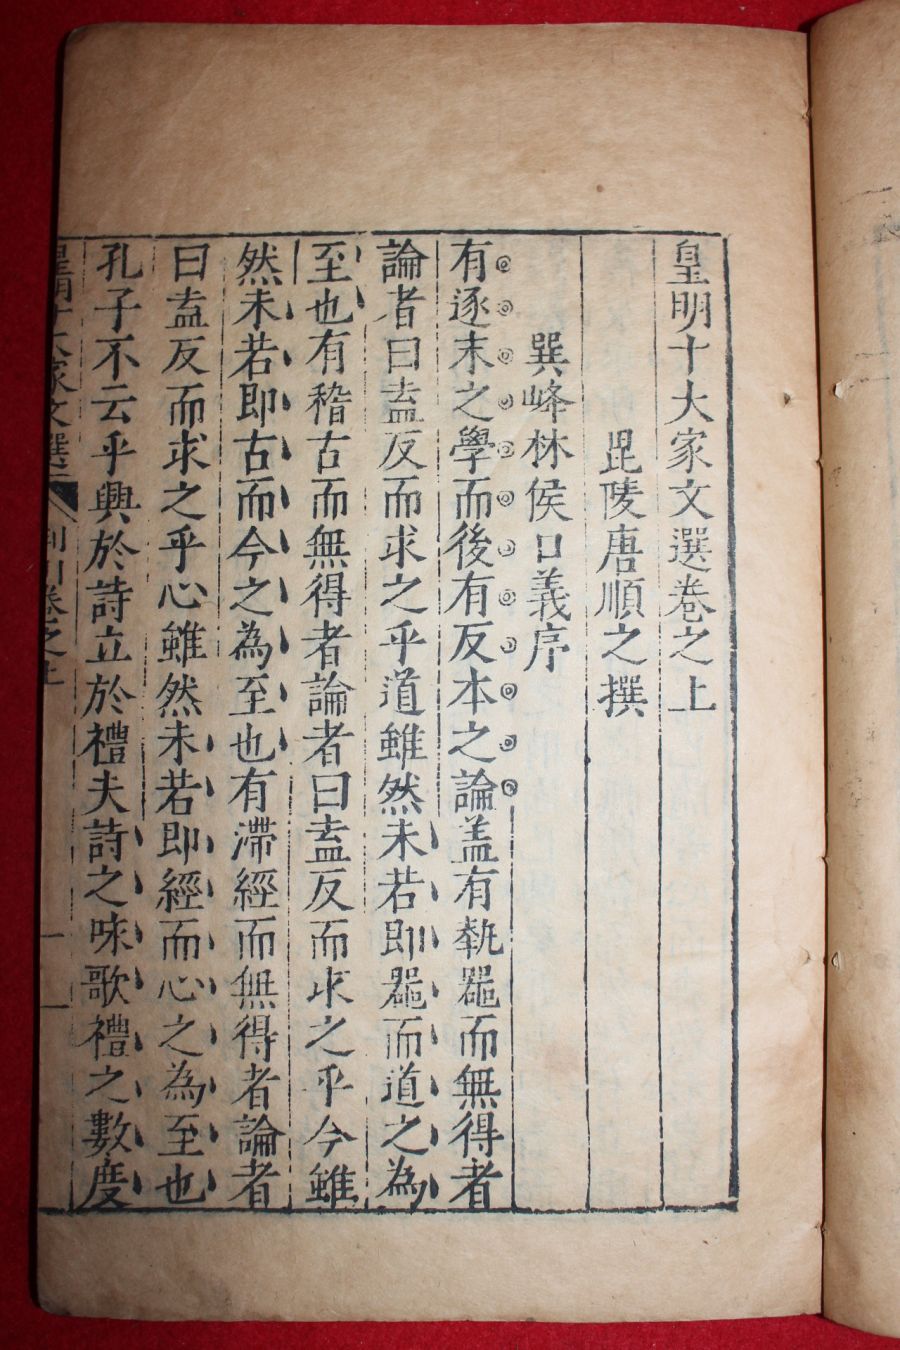 皇明十大家文選卷之上
毘陵唐順之撰
巽峰林侯口義序
有逐末之學而後有反本之論盖有執器而無得者
論者曰盍反而求之乎道雖然未若即器而道之為
至也有稽古而無得者論者曰盍反而求之乎今雖
然未若即古而今之為至也有滯經而無得者論者
曰盍反而求之乎心雖然未若即經而心之為至也
孔子不云乎興於詩立於禮夫詩之咏歌禮之數度
皇明十大家文選 荆川卷之上 一